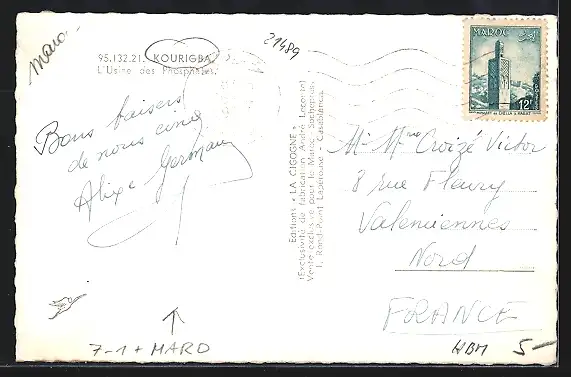 Maroc
95.132.21. KOURIGBA
L'Usine des Phosphates.
21489
MAROC
12F
POSTES
MINARET DE CHELLA A RABAT
Bons baisers
de nous cinq
Alixe Germain
Editions « LA CIGOGNE »
(Exclusivité de fabrication André Leconte)
Vente exclusive pour le Maroc Sochepress
1, Rond-Point Lapérouse - Casablanca
Mr Mme Croizé Victor
8 rue Fleury
Valenciennes
Nord
FRANCE
7-1 + MARO
HBM 5-